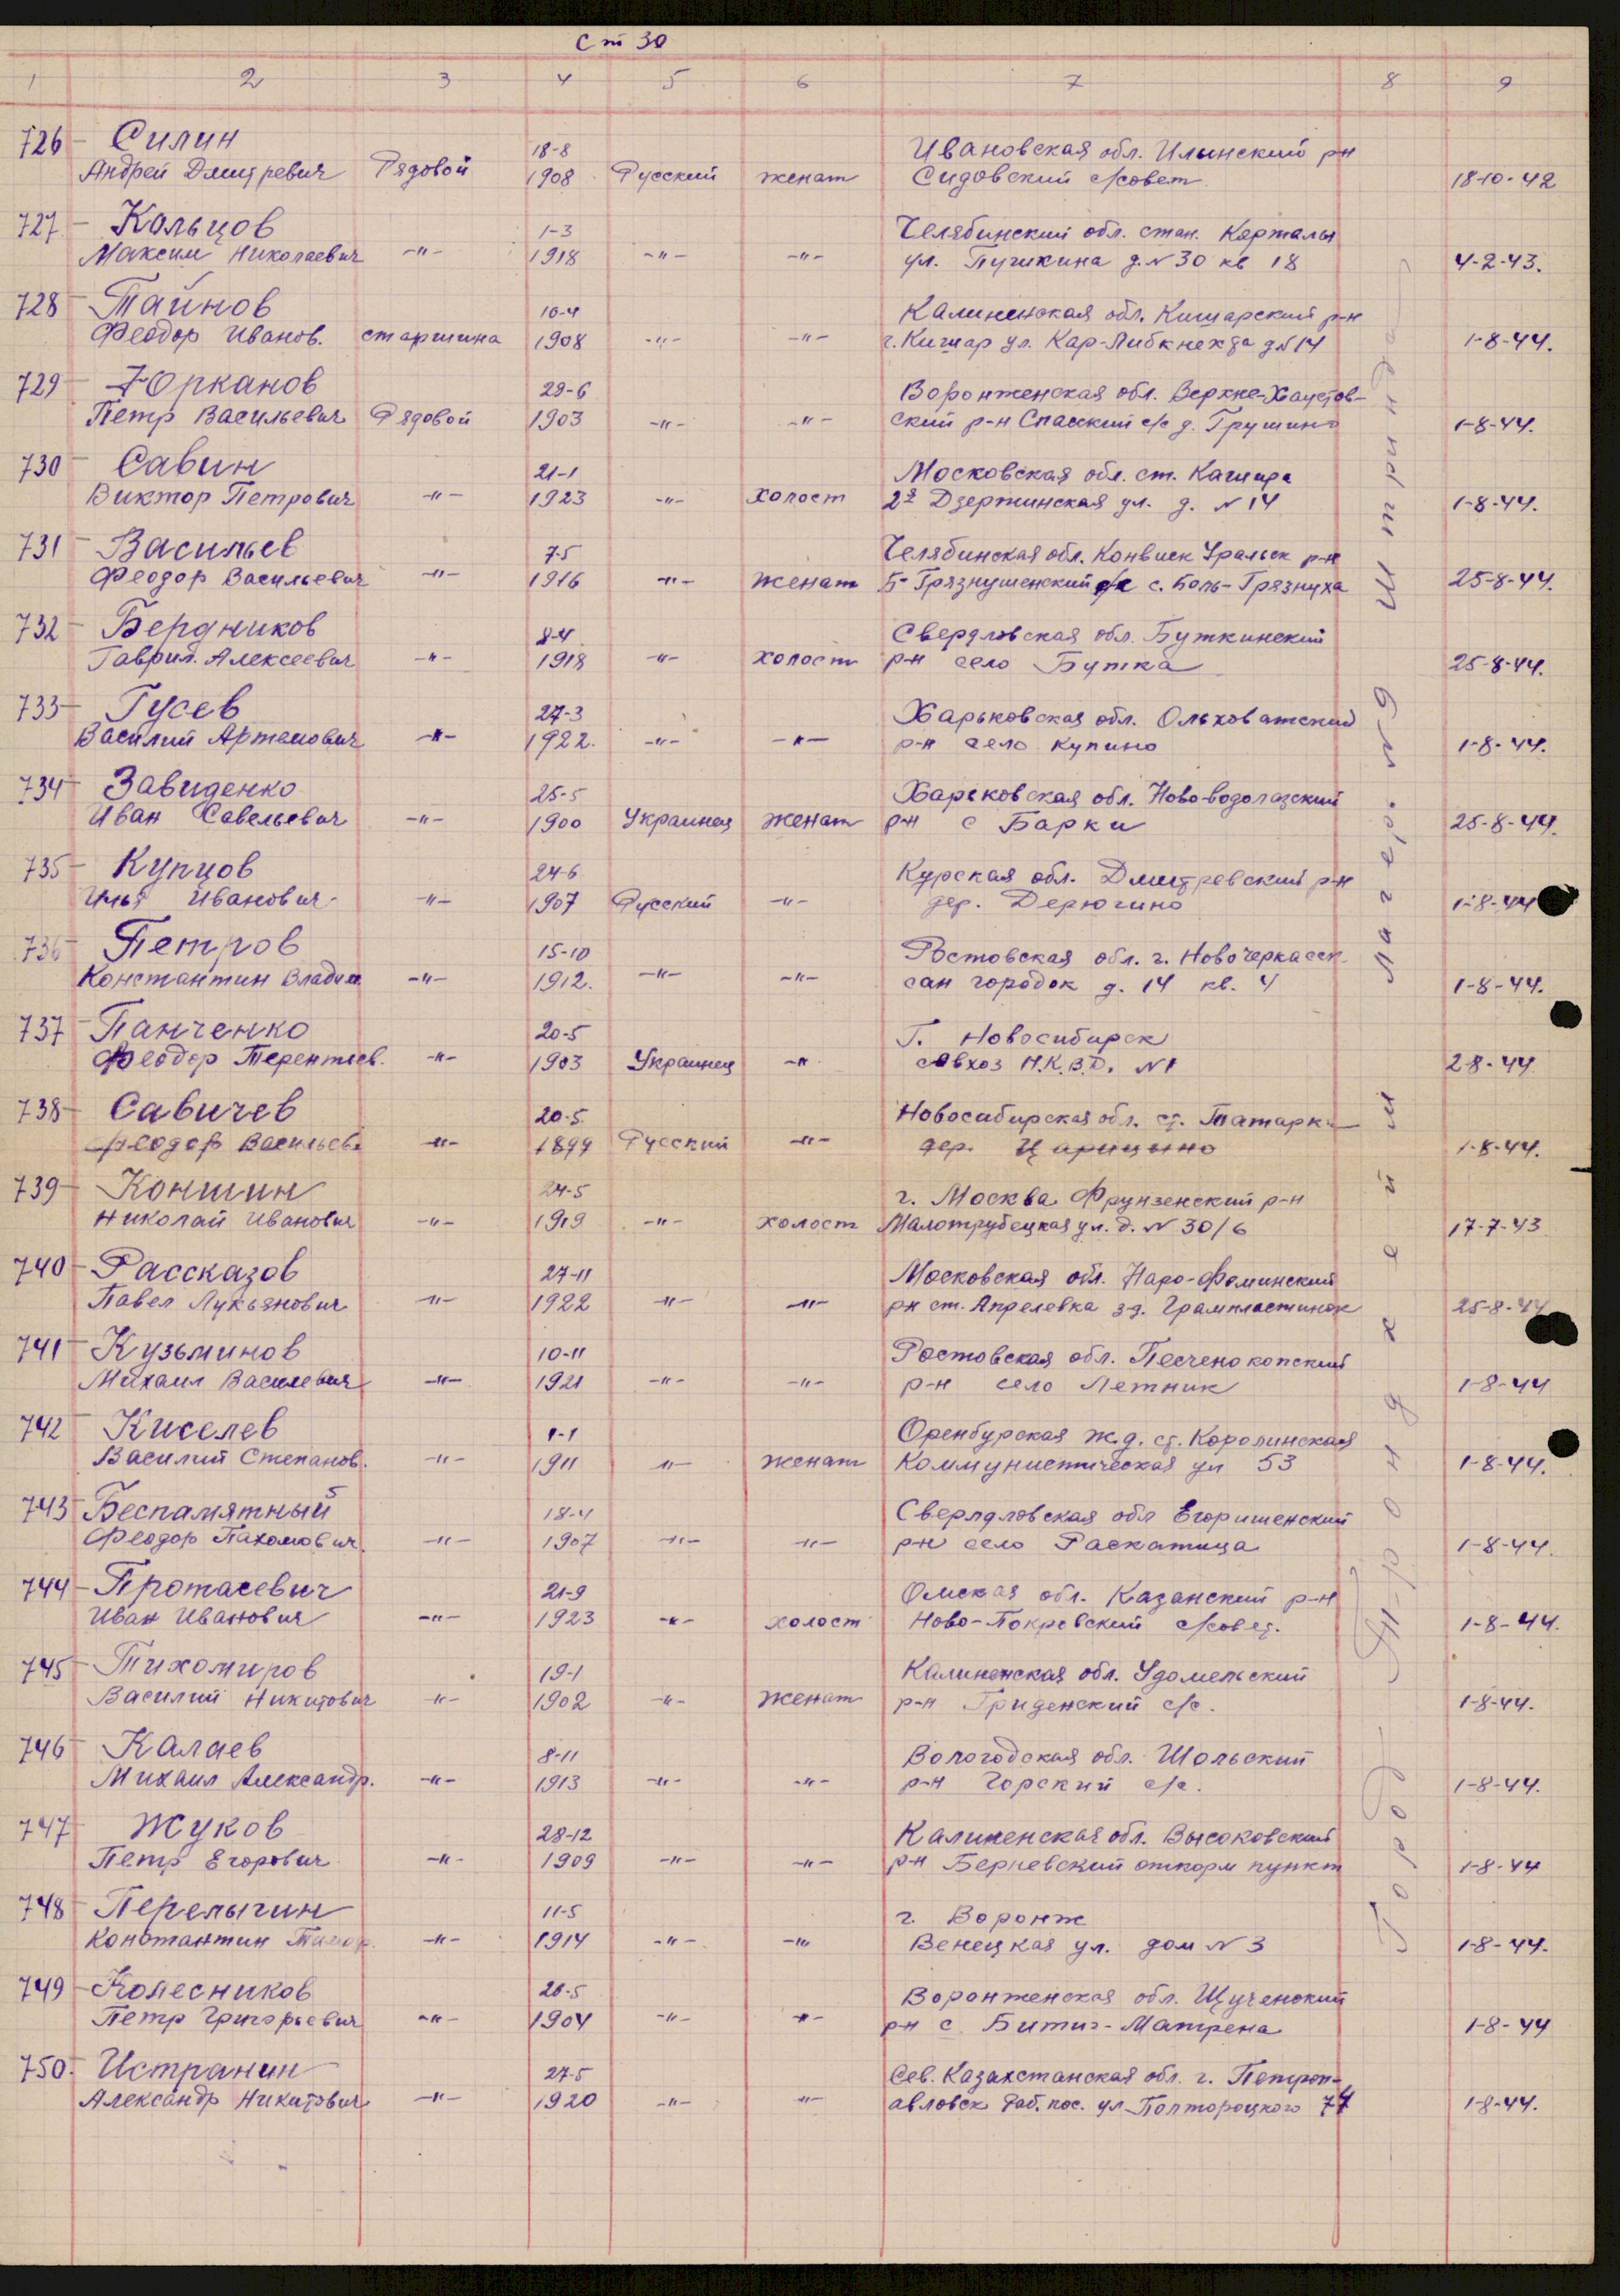 Ст 30
1 2 3 4 5 6 7 8 9
726 – Силин 18-8 Ивановская обл. Илынский р-н
Андрей Дмитревич Рядовой 1908 Русский женат Сидовский с/совет 18-10-42
727 – Кольцов 1-3 Челябинский обл. стан. Карталы
Максим Николаевич -"- 1918 -"- -"- ул. Пушкина д. N 30 кв 18 4-2-43.
728 – Тайнов 10-4 Калиненская обл. Кишарский р-н
Феодор Иванов. старшина 1908 -"- -"- г. Кишар ул. Кар-Либкнехда д N 14 1-8-44.
729 – Юрканов 29-6 Воронженская обл. Верхне-Хаустов-
Петр Васильевич Рядовой 1903 -"- -"- ский р-н Спасский с/с д. Грушино 1-8-44.
730 Савин 21-1 Московская обл. ст. Кашира
Виктор Петрович -"- 1923 -"- холост 2я Дзержинская ул. д. N 14 1-8-44.
731 – Васильев 7-5 Челябинская обл. Конвиск Уральск р-н
Феодор Васильевич -"- 1916 -"- женат Б-Грязнушенский с/с с. Боль-Грязнуха 25-8-44.
732 – Бердников 8-4 Свердловская обл. Буткинский
Гаврил. Алексеевич -"- 1918 -"- холост р-н село Бутка 25-8-44.
733 – Гусев 27-3 Харьковская обл. Ольховатский
Василий Артемович -"- 1922. -"- -"- р-н село Купино 1-8-44.
734 – Завиденко 25-5 Харековская обл. Ново-водолазский
Иван Савельевич -"- 1900 Украинец женат р-н с Барки 25-8-44.
735 – Купцов 24-6 Курская обл. Дмитревский р-н
Илья Иванович -"- 1907 Русский -"- дер. Дерюгино 1-8-44
736 – Петров 15-10 Ростовская обл. г. Новочеркасск
Константин Владим. -"- 1912. -"- -"- сан городок д. 14 кв. 4 1-8-44.
737 – Панченко 20-5 Г. Новосибирск
Феодор Терентиев. -"- 1903 Украинец -"- совхоз Н.К.В.Д. N 1 2-8-44
738 – Савичев 20-5. Новосибирская обл. ст. Татарка
Феодор Васильев. -"- 1899 Русский -"- дер. Царицыно 1-8-44.
739 – Коншин 24-5 г. Москва Фрунзенский р-н
Николай Иванович -"- 1919 -"- холост Малотрубецкая ул. д. N 30/6 17-7-43
740 – Рассказов 27-11 Московская обл. Наро-Фоминский
Павел Лукьянович -"- 1922 -"- -"- р-н ст. Апрелевка з-д. Грампластинок 25-8-44
741 – Кузьминов 10-11 Ростовская обл. Песченокопский
Михаил Василевич -"- 1921 -"- -"- р-н село Летник 1-8-44
742 – Киселев 1-1 Оренбурская ж.д. ст. Каролинская
Василий Степанов. -"- 1911 -"- женат Коммунистическая ул 53 1-8-44.
743 – Беспамятный 18-4 Свердловская обл Егоришенский
Феодор Пахомович. -"- 1907 -"- -"- р-н село Раскатица 1-8-44.
744 – Протасевич 21-9 Омская обл. Казанский р-н
Иван Иванович -"- 1923 -"- холост Ново-Покровский с/совет. 1-8-44.
745 – Тихомиров 19-1 Калиненская обл. Удомельский
Василий Никитович -"- 1902 -"- женат р-н Гриденский с/с. 1-8-44.
746 – Калаев 8-11 Вологодская обл. Шольский
Михаил Александр. -"- 1913 -"- -"- р-н Горский с/с. 1-8-44.
747 – Жуков 28-12 Калиненская обл. Высоковский
Петр Егорович -"- 1909 -"- -"- р-н Берневский откорм пункт 1-8-44
748 – Перелыгин 11-5 г. Воронж
Константин -"- 1914 -"- -"- Венецкая ул. дом N 3 1-8-44.
749 – Колесников 20-5 Воронженская обл. Щученский
Петр Григорьевич -"- 1904 -"- -"- р-н с Битиг-Матрена 1-8-44
750. Истранин 27-5 Сев. Казахстанская обл. г. Петроп-
Александр Никитович -"- 1920 -"- -"- авловск Раб. пос. ул Полтороцкого 74 1-8-44.
Город Трондхейм Лагерь N 9 Штринда